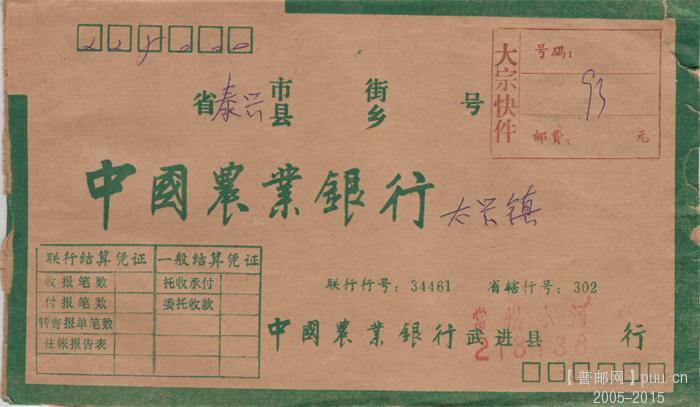 大宗快件
号码:
93
邮费: 元
省泰兴市县 街乡 号
中國農業銀行 大兴镇
联行结算凭证 一般结算凭证
收报笔数 托收承付
付报笔数 委托收款
转寄报单笔数
往帐报告表
联行行号:34461 省辖行号:302
中國農業銀行武进县 行
【普邮网】puu.cn
2005-2015